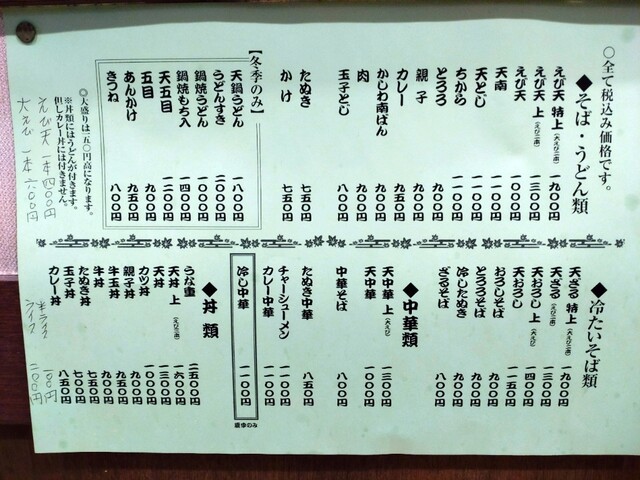 ○全て税込み価格です。
◆そば・うどん類
えび天 特上(大えび二本) 一九〇〇円
えび天 上(えび二本) 一三〇〇円
えび天 一〇〇〇円
天南 一一〇〇円
天とじ 一一〇〇円
ちから 一〇〇〇円
とろろ 九〇〇円
親子 九〇〇円
カレー 九五〇円
かしわ南ばん 九〇〇円
肉 九〇〇円
玉子とじ 八〇〇円
たぬき 七五〇円
かけ 七五〇円
【冬季のみ】
天鍋うどん 一八〇〇円
うどんすき 二〇〇〇円
鍋焼うどん 一〇〇〇円
鍋焼もち入 一四〇〇円
天五目 一二〇〇円
五目 九〇〇円
あんかけ 九五〇円
きつね 八〇〇円
◎大盛りは一五〇円高になります。
※丼類にはうどんが付きます。
但しカレー丼には付きません。
えび天 一本 四〇〇円
大えび 一本 六〇〇円
◆冷たいそば類
天ざる 特上(大えび二本) 一九〇〇円
天ざる 上(えび二本) 一三〇〇円
天おろし 上(大えび) 一四〇〇円
天おろし 一一五〇円
おろしそば 九〇〇円
とろろそば 九〇〇円
冷したぬき 九〇〇円
ざるそば 八〇〇円
◆中華類
天中華 上(大えび) 一三〇〇円
天中華 一〇〇〇円
中華そば 八〇〇円
たぬき中華 八五〇円
チャーシューメン 一一〇〇円
カレー中華 一〇〇〇円
冷し中華 一一〇〇円
夏季のみ
◆丼類
うな重 二五〇〇円
天丼 上(えび二本) 一六〇〇円
天丼 一三〇〇円
カツ丼 一〇〇〇円
親子丼 九〇〇円
牛玉丼 九五〇円
牛丼 九〇〇円
たぬき丼 七五〇円
玉子丼 七五〇円
カレー丼 八五〇円
半ライス 一〇〇円
ライス 二〇〇円